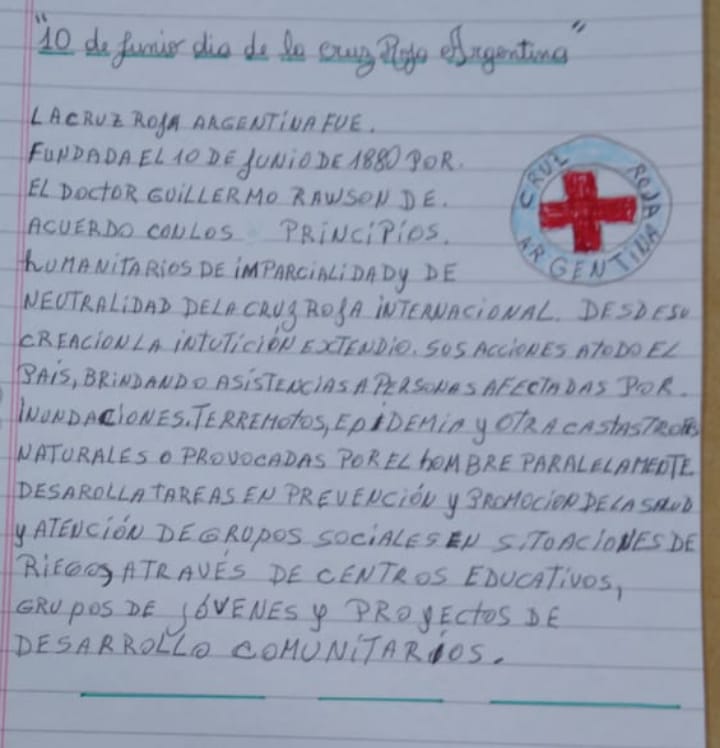 "10 de junior dia de la cruz Roja Argentina"
LA CRUZ ROJA ARGENTINA FUE.
FUNDADA EL 10 DE JUNIO DE 1880 POR.
EL DOCTOR GUILLERMO RAWSON DE.
ACUERDO CON LOS PRINCIPIOS.
HUMANITARIOS DE IMPARCIALIDAD y DE
NEUTRALIDAD DE LA CRUZ ROJA INTERNACIONAL. DESDE SU
CREACION LA INTUTICIÓN EXTENDIO. SUS ACCIONES A TODO EL
PAÍS, BRINDANDO ASISTENCIAS A PERSONAS AFECTADAS POR.
INUNDACIONES. TERREMOTOS, EPIDEMIA y OTRA CASTASTROFES
NATURALES O PROVOCADAS POR EL HOMBRE PARALELAMENTE
DESAROLLA TAREAS EN PREVENCIÓN y PROMOCION DE LA SALUD
y ATENCIÓN DE GRUPOS SOCIALES EN SITUACIONES DE
RIEGOS, ATRAVÉS DE CENTROS EDUCATIVOS,
GRUPOS DE JÓVENES y PROYECTOS DE
DESARROLLO COMUNITARIOS.
CRUZ ROJA
ARGENTINA